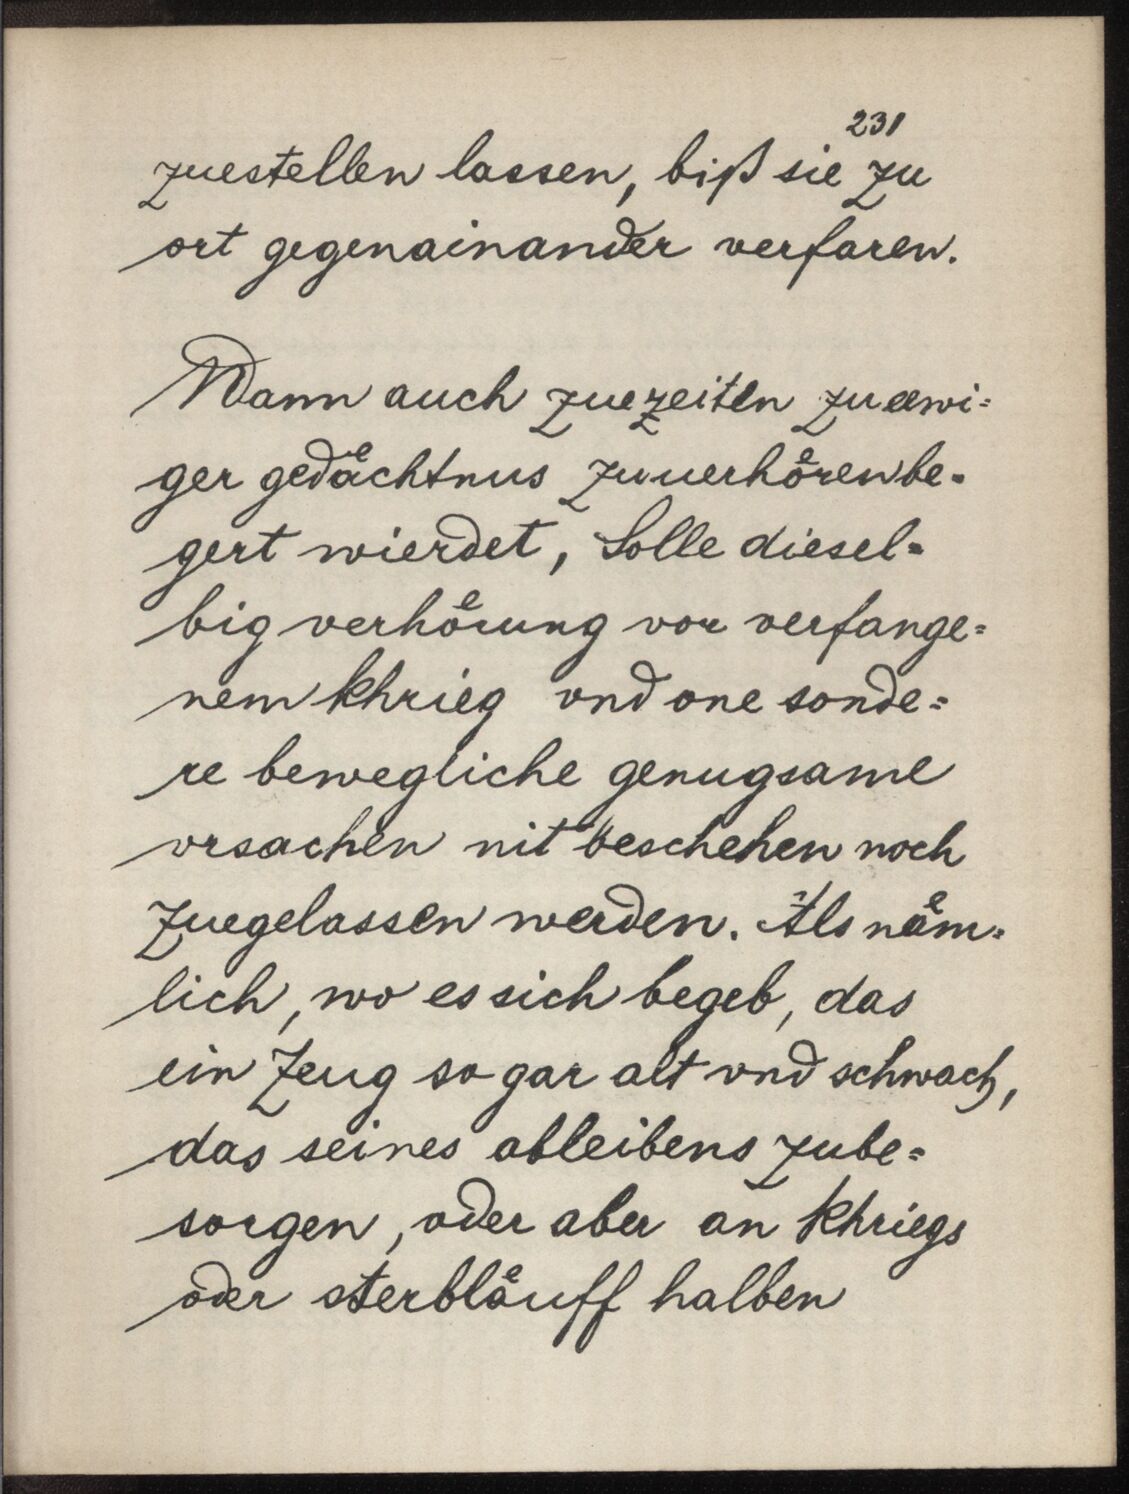 231
zuestellen lassen, biß sie zu
ort gegenainander verfaren.
Wann auch zuezeiten zu eewi=
ger gedaͤchtnus zuuerhoͤren be=
gert wierdet, Solle diesel=
big verhoͤrung vor verfange=
nem khrieg vnd one sonde=
re bewegliche genugsame
vrsachen nit beschehen noch
zuegelassen werden. Als naͤm=
lich, wo es sich begeb, das
ein Zeug so gar alt vnd schwach,
das seines ableibens zube=
sorgen, oder aber an khriegs
oder sterblaͤuff halben